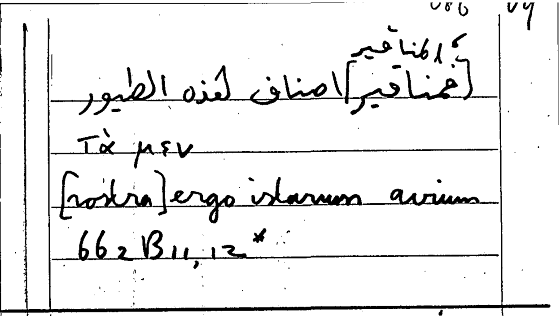 المناقير
[فمناقير] اصناف هذه الطيور
Τὰ μεν
[rostra] ergo istarum avium
662 B 11, 12*